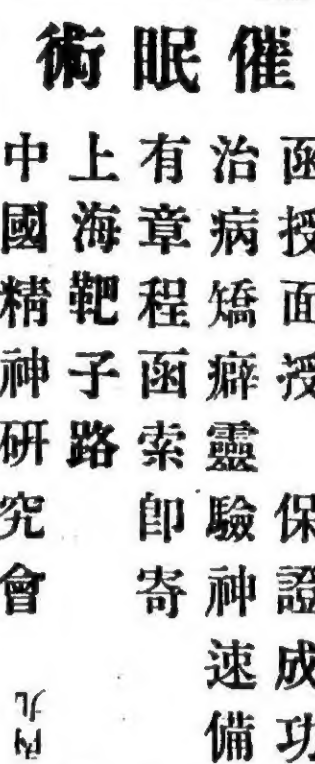 催眠術
函授面授　保證成功
治病矯癖靈驗神速備
有章程函索即寄
上海靶子路
中國精神研究會
內九